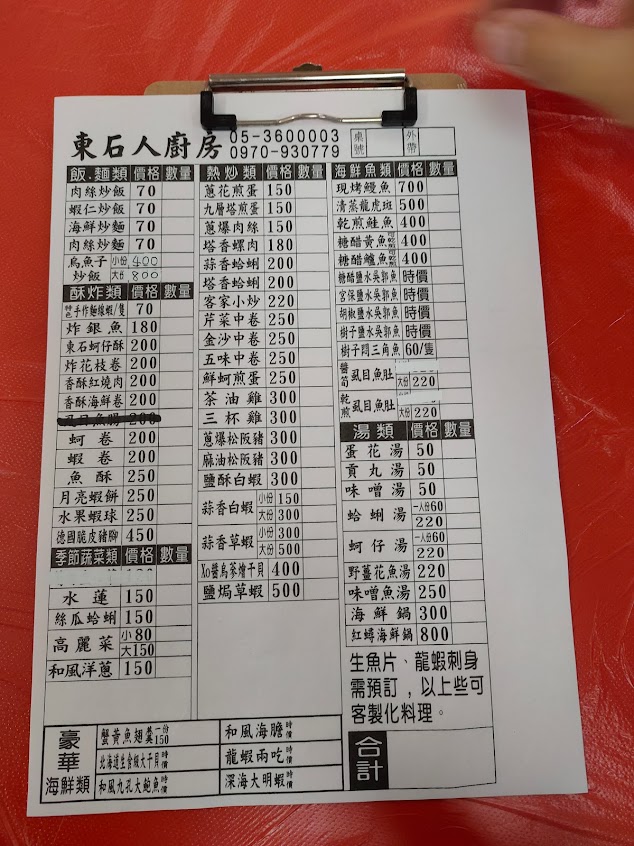 東石人廚房 05-3600003 桌號 外帶
0970-930779
飯.麵類 價格 數量
肉絲炒飯 70
蝦仁炒飯 70
海鮮炒麵 70
肉絲炒麵 70
烏魚子炒飯 小份 400
大份 800
酥炸類 價格 數量
特色手作麵線蝦/隻 70
炸銀魚 180
東石蚵仔酥 200
炸花枝卷 200
香酥紅燒肉 200
香酥海鮮卷 200
蚵卷 200
蝦卷 200
魚酥 250
月亮蝦餅 250
水果蝦球 250
德國脆皮豬腳 450
季節蔬菜類 價格 數量
水蓮 150
絲瓜蛤蜊 150
高麗菜 小80
大150
和風洋蔥 150
熱炒類 價格 數量
蔥花煎蛋 150
九層塔煎蛋 150
蔥爆肉絲 150
塔香螺肉 180
蒜香蛤蜊 200
塔香蛤蜊 200
客家小炒 220
芹菜中卷 250
金沙中卷 250
五味中卷 250
鮮蚵煎蛋 250
茶油雞 300
三杯雞 300
蔥爆松阪豬 300
麻油松阪豬 300
鹽酥白蝦 300
蒜香白蝦 小份 150
大份 300
蒜香草蝦 小份 300
大份 500
Xo醬烏參燴干貝 400
鹽焗草蝦 500
海鮮魚類 價格 數量
現烤鰻魚 700
清蒸龍虎斑 500
乾煎鮭魚 400
糖醋黃魚 可乾煎 400
糖醋鱸魚 可乾煎 400
糖醋鹽水吳郭魚 時價
宮保鹽水吳郭魚 時價
胡椒鹽水吳郭魚 時價
樹子鹽水吳郭魚 時價
樹子悶三角魚 60/隻
醬筍虱目魚肚 大份 220
乾煎虱目魚肚 大份 220
湯類 價格 數量
蛋花湯 50
貢丸湯 50
味噌湯 50
蛤蜊湯 一人份60
220
蚵仔湯 一人份60
220
野薑花魚湯 220
味噌魚湯 250
海鮮鍋 300
紅蟳海鮮鍋 800
生魚片、龍蝦刺身
需預訂，以上些可
客製化料理。
豪華海鮮類
蟹黃魚翅羹 一份150
北海道生食級大干貝 時價
和風九孔大鮑魚 時價
和風海膽 時價
龍蝦兩吃 時價
深海大明蝦 時價
合計